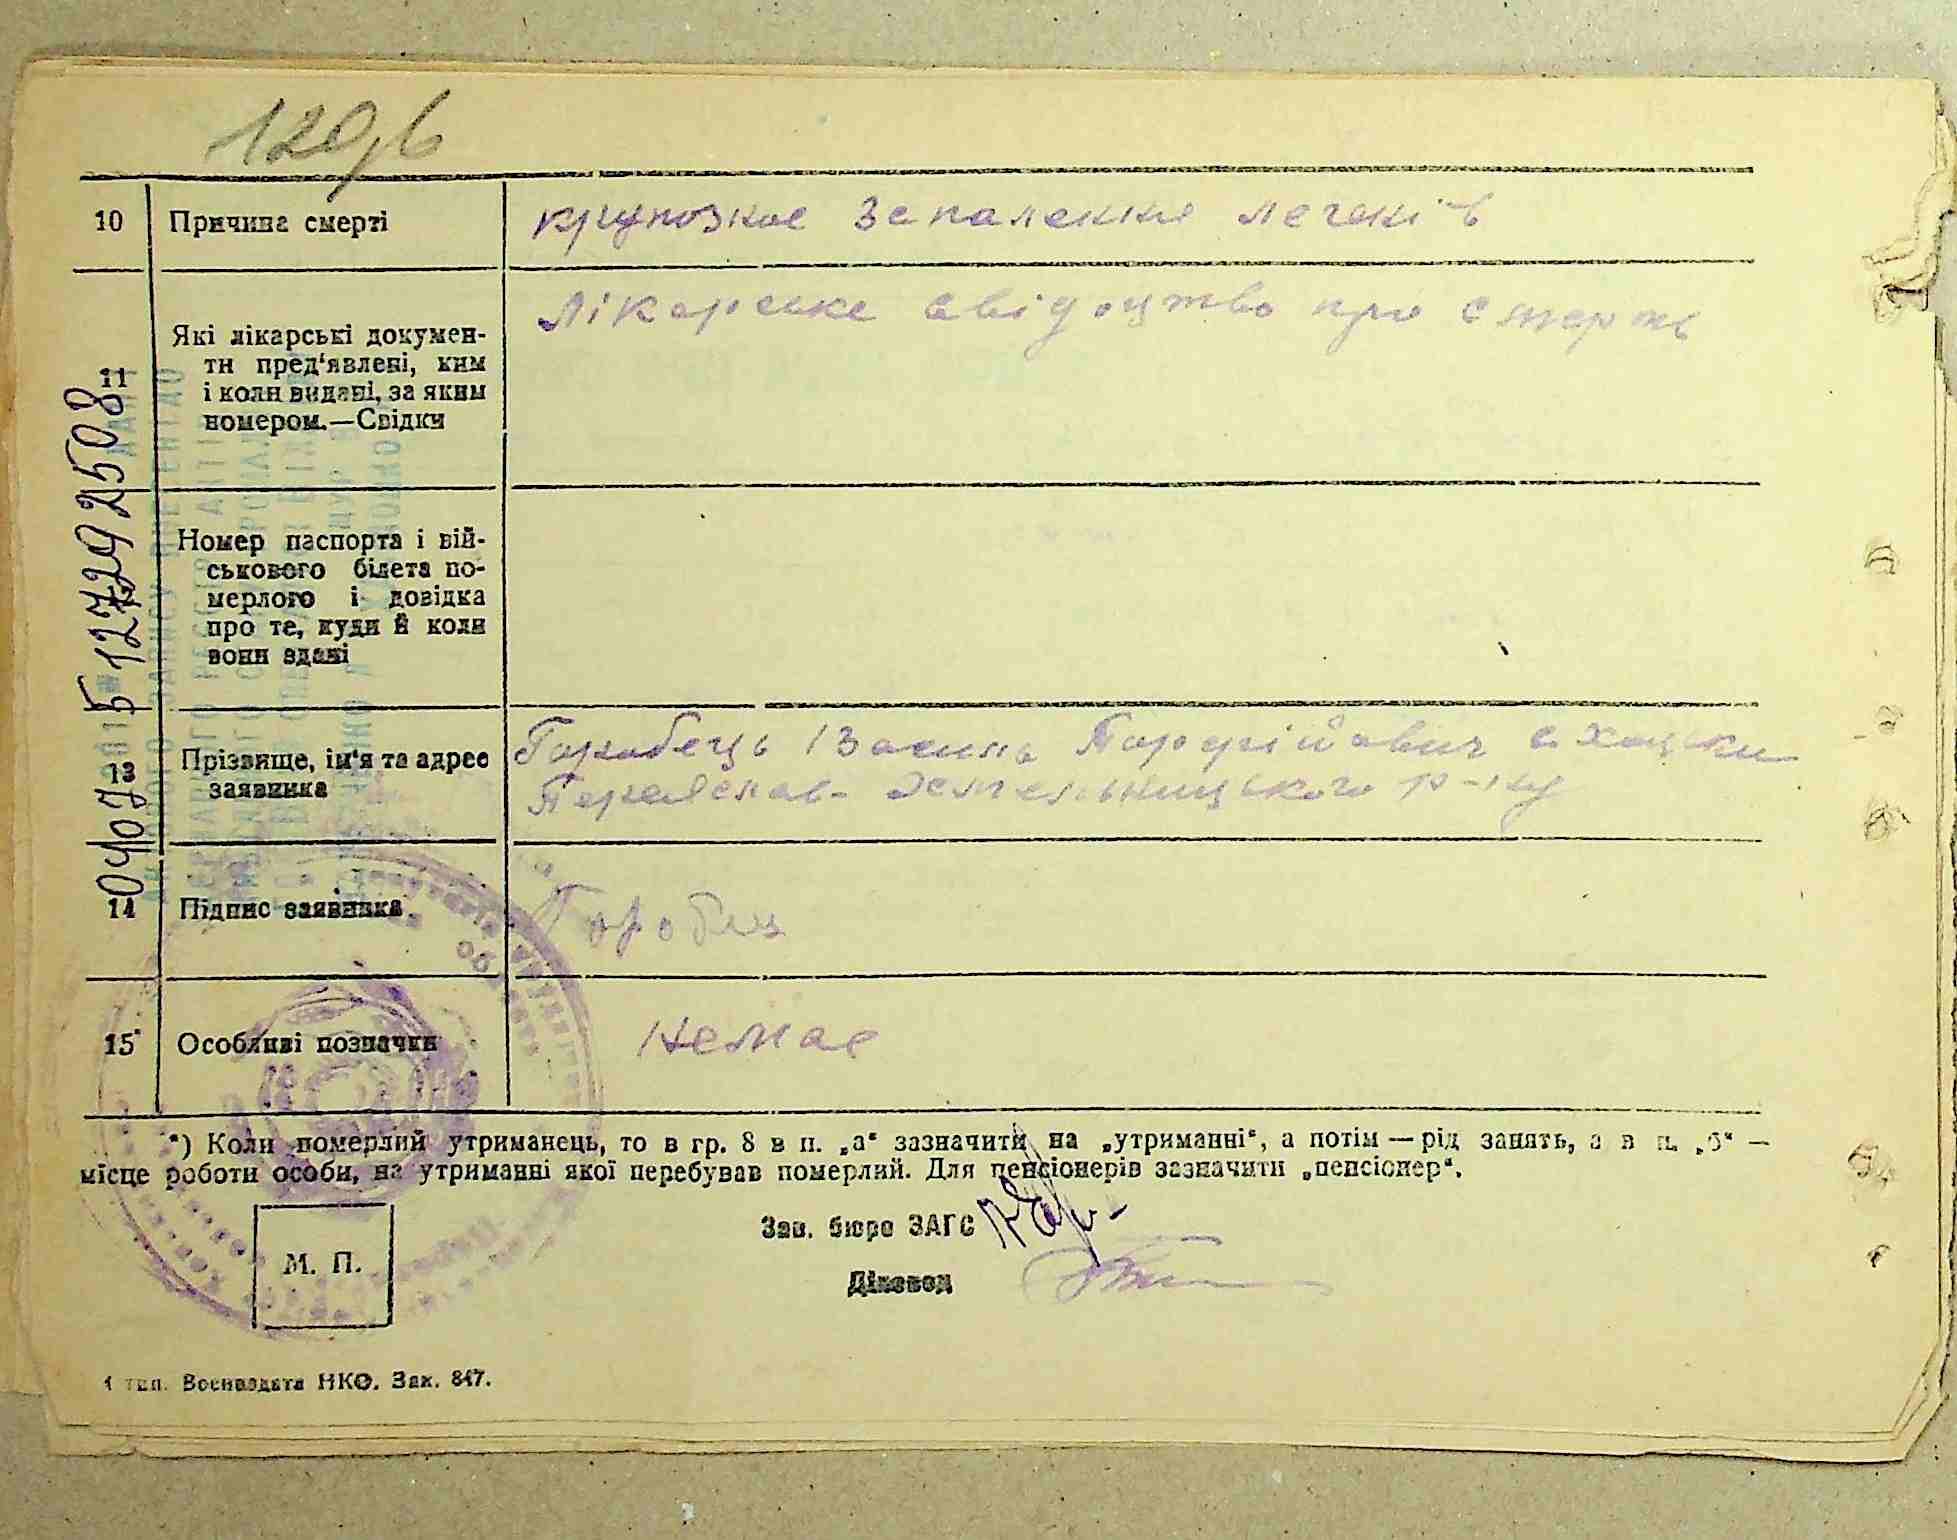 10 Причина смерті крупозное запалення легенів
11 Які лікарські докумен-
ти пред'явлені, ким
і коли видані, за яким
номером.—Свідки
Лікарське свідоцтво про смерть
Номер паспорта і вій-
ськового білета по-
мерлого і довідка
про те, куди й коли
вони здані
13 Прізвище, ім'я та адрес
заявника
Горобець Василь с. Хоцьки
Переяслав-Хмельницького р-ну
14 Підпис заявника Горобец
15 Особливі позначки немає
*) Коли померлий утриманець, то в гр. 8 в п. „а“ зазначити на „утриманні“, а потім — рід занять, а в п. „б“ —
місце роботи особи, на утриманні якої перебував померлий. Для пенсіонерів зазначити „пенсіонер“.
Зав. бюро ЗАГС
М. П.
Діловод
1 тип. Воениздата НКО. Зак. 847.